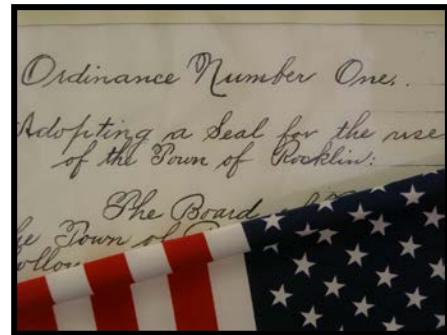 Ordinance Number One.
Adopting a Seal for the use
of the Town of Rocklin:
The Board
Town of